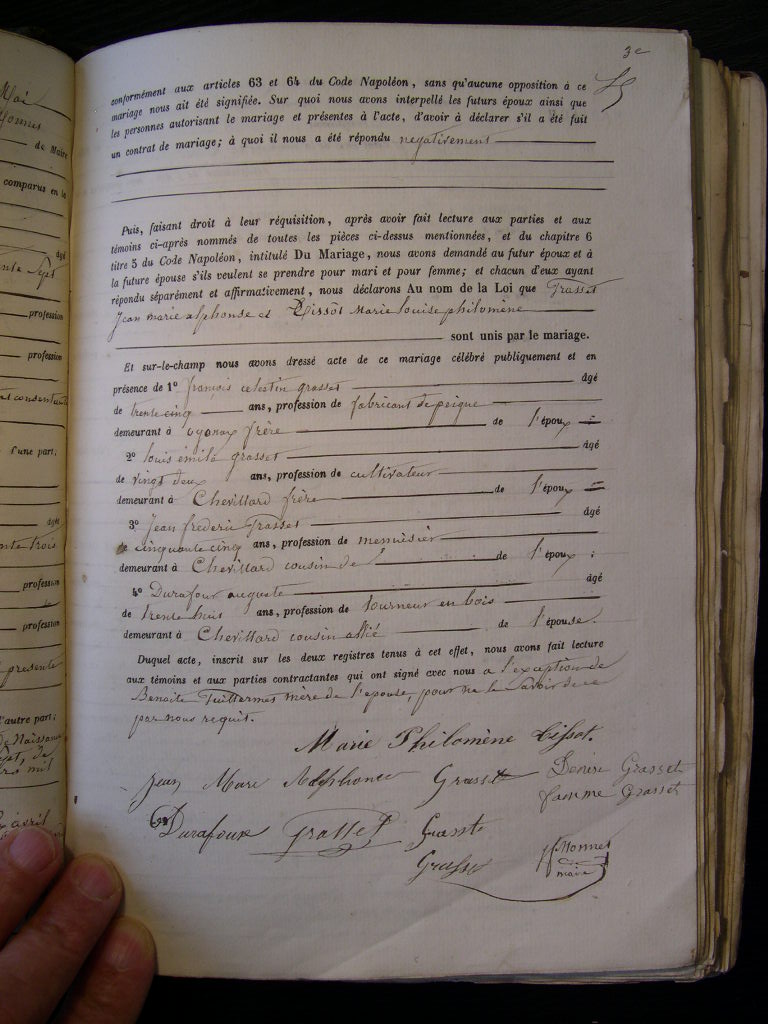 3e
conformément aux articles 63 et 64 du Code Napoléon, sans qu'aucune opposition à ce
mariage nous ait été signifiée. Sur quoi nous avons interpellé les futurs époux ainsi que
les personnes autorisant le mariage et présentes à l'acte, d'avoir à déclarer s'il a été fait
un contrat de mariage; à quoi il nous a été répondu negativement
Puis, faisant droit à leur réquisition, après avoir fait lecture aux parties et aux
témoins ci-après nommés de toutes les pièces ci-dessus mentionnées, et du chapitre 6
titre 5 du Code Napoléon, intitulé Du Mariage, nous avons demandé au futur époux et à
la future épouse s'ils veulent se prendre pour mari et pour femme; et chacun d'eux ayant
répondu séparément et affirmativement, nous déclarons Au nom de la Loi que Grasset
Jean marie alphonse et Bissot Marie louise philomène
sont unis par le mariage.
Et sur-le-champ nous avons dressé acte de ce mariage célébré publiquement et en
présence de 1º françois celestin grasset âgé
de trente cinq ans, profession de fabricant de peigne
demeurant à oyonax frère de l'époux
2º louis émile grasset âgé
de vingt deux ans, profession de cultivateur
demeurant à Chevillard frère de l'époux
3º Jean frederic Grasset âgé
de cinquante cinq ans, profession de menuisier
demeurant à Chevillard cousin de l' de l'époux :
4º Durafour auguste âgé
de trente huit ans, profession de tourneur en bois
demeurant à Chevillard cousin allié de l'épouse.
Duquel acte, inscrit sur les deux registres tenus à cet effet, nous avons fait lecture
aux témoins et aux parties contractantes qui ont signé avec nous a l'exception de
Benoite Guillermet mère de l'épouse, pour ne le savoir de ce
par nous requit.
Marie Philomène Bissot.
Jean Marie Alphonce Grasset Denise Grasset
famme Grasset
Durafour Grasset Grasset
Grasset Monnet
maire